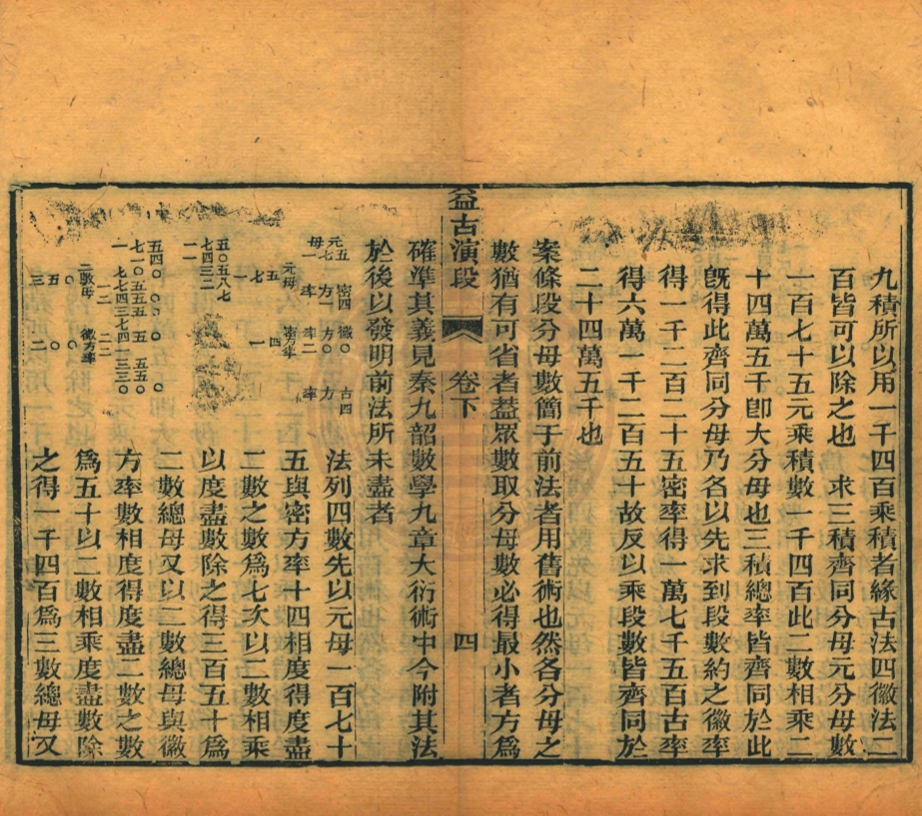 九積所以用一千四百乘積者緣古法四徽法二
百皆可以除之也　求三積齊同分母元分母數
一百七十五元乘積數一千四百此二數相乘二
十四萬五千卽大分母也三積總率皆齊同於此
旣得此齊同分母乃各以先求到段數約之徽率
得一千二百二十五密率得一萬七千五百古率
得六萬一千二百五十故反以乘段數皆齊同於
二十四萬五千也
案條段分母數簡于前法者用舊術也然各分母之
數猶有可省者葢眾數取分母數必得最小者方爲
益古演段　卷下　四
確準其義見秦九韶數學九章大衍術中今附其法
於後以發明前法所未盡者
元母 一七五
密方率 一四
徽方率 二〇〇
古方率 四
法列四數先以元母一百七十
五與密方率十四相度得度盡
元母 一七五
密方率 一四
二數之數爲七次以二數相乘
以度盡數除之得三百五十爲
二數總母又以二數總母與徽
二數母
徽方率
方率數相度得度盡二數之數
爲五十以二數相乘度盡數除
之得一千四百爲三數總母又